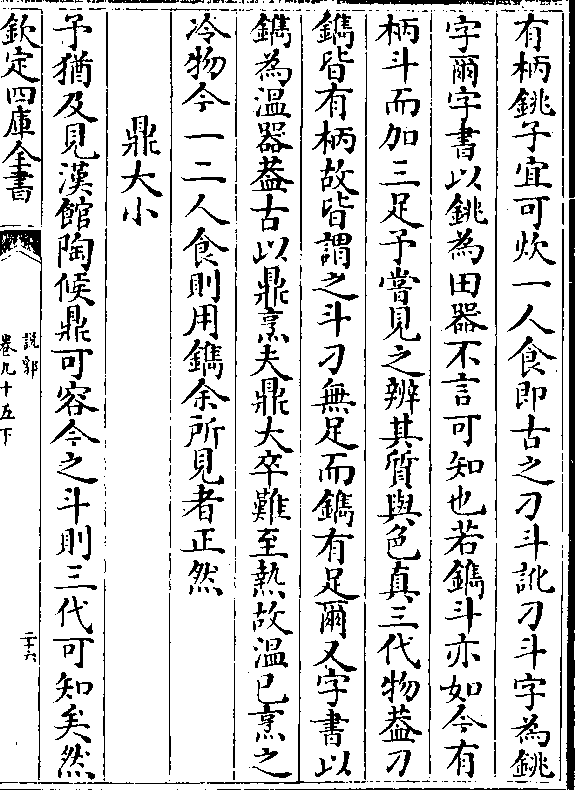 有柄銚子宜可炊一人食即古之刁斗訛刁斗字為銚
字爾字書以銚為田器不言可知也若鐫斗亦如今有
柄斗而加三足予嘗見之辨其質與色真三代物葢刁
鐫皆有柄故皆謂之斗刁無足而鐫有足爾又字書以
鐫為溫器葢古以鼎烹夫鼎大卒難至熱故溫已烹之
冷物今一二人食則用鐫余所見者正然
鼎大小
予猶及見漢館陶侯鼎可容今之斗則三代可知矣然
欽定四庫全書
說郛
卷九十五下
二十六